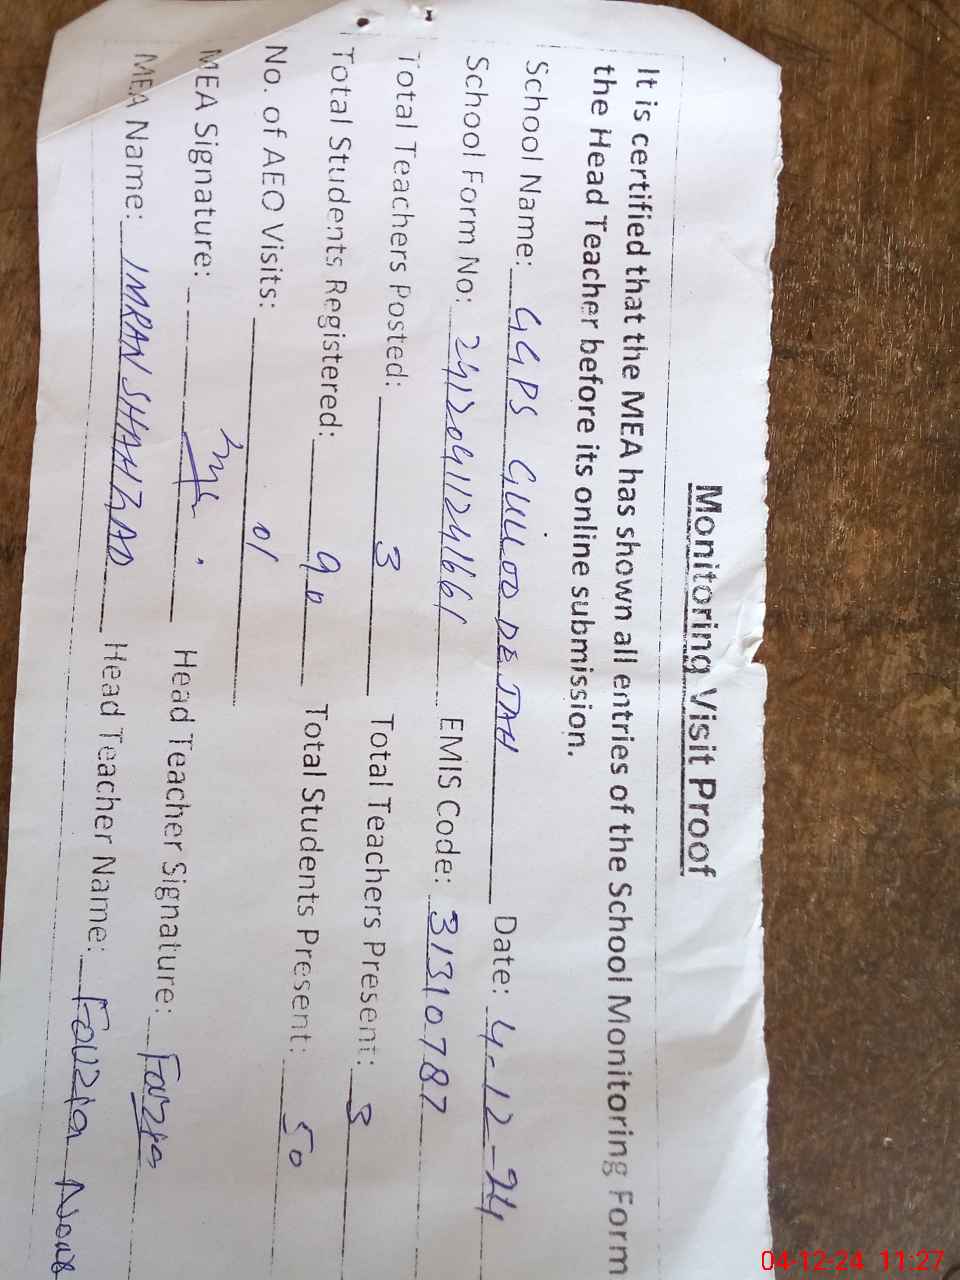 Monitoring Visit Proof
It is certified that the MEA has shown all entries of the School Monitoring Form
the Head Teacher before its online submission.
School Name: GGPS GULLOO DE JAH Date: 4-12-24
School Form No: 24120411241661 EMIS Code: 31310787
Total Teachers Posted: 3 Total Teachers Present: 3
Total Students Registered: 90 Total Students Present: 50
No. of AEO Visits: 01
MEA Signature: Head Teacher Signature: Fozia
MEA Name: IMRAN SHAHZAD Head Teacher Name: Fouzia
04-12-24 11:27